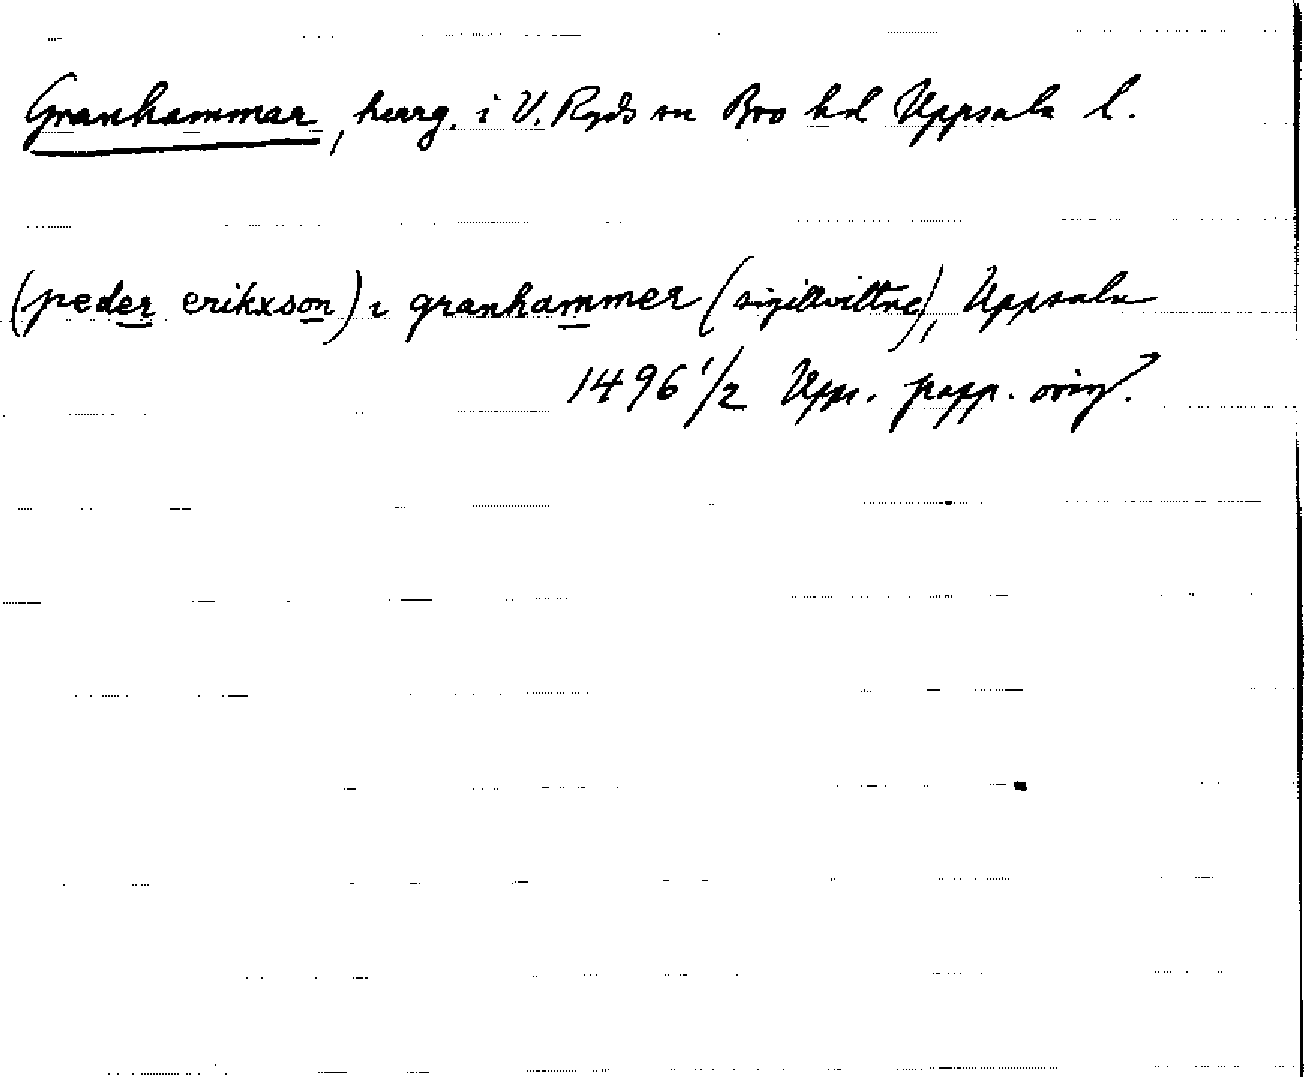 Granhammar, herrg. i V. Ryds sn Bro hd Uppsala l.
(peder erikxson) i granhammer (sigillvittne), Uppsala
1496 1/2 Upps. papp. orig.